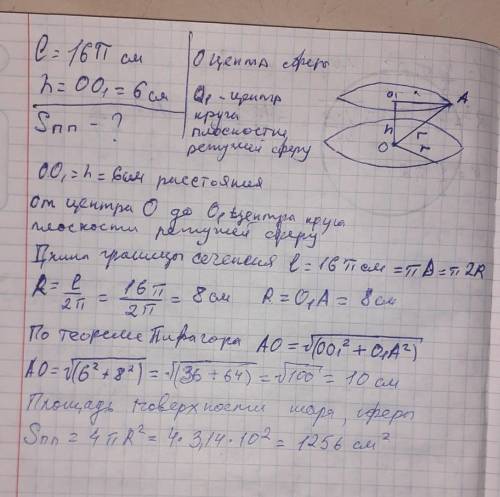 ℓ = 16π см
h = OO₁ = 6 см
Sпп - ?
O центр сферы
O₁ - центр
круга
плоскости,
режущей сферу
O₁
A
h
r
r
O
OO₁ = h = 6 см расстояния
от центра O до O₁ центра круга
плоскости режущей сферу
Длина границы сечения ℓ = 16π см = πD = π2R
R = ℓ/2π = 16π/2π = 8 см R = O₁A = 8 см
По теореме Пифагора AO = √(OO₁² + O₁A²)
AO = √(6² + 8²) = √(36 + 64) = √100 = 10 см
Площадь поверхности шара, сферы
Sпп = 4πR² = 4 · 3,14 · 10² = 1256 см²